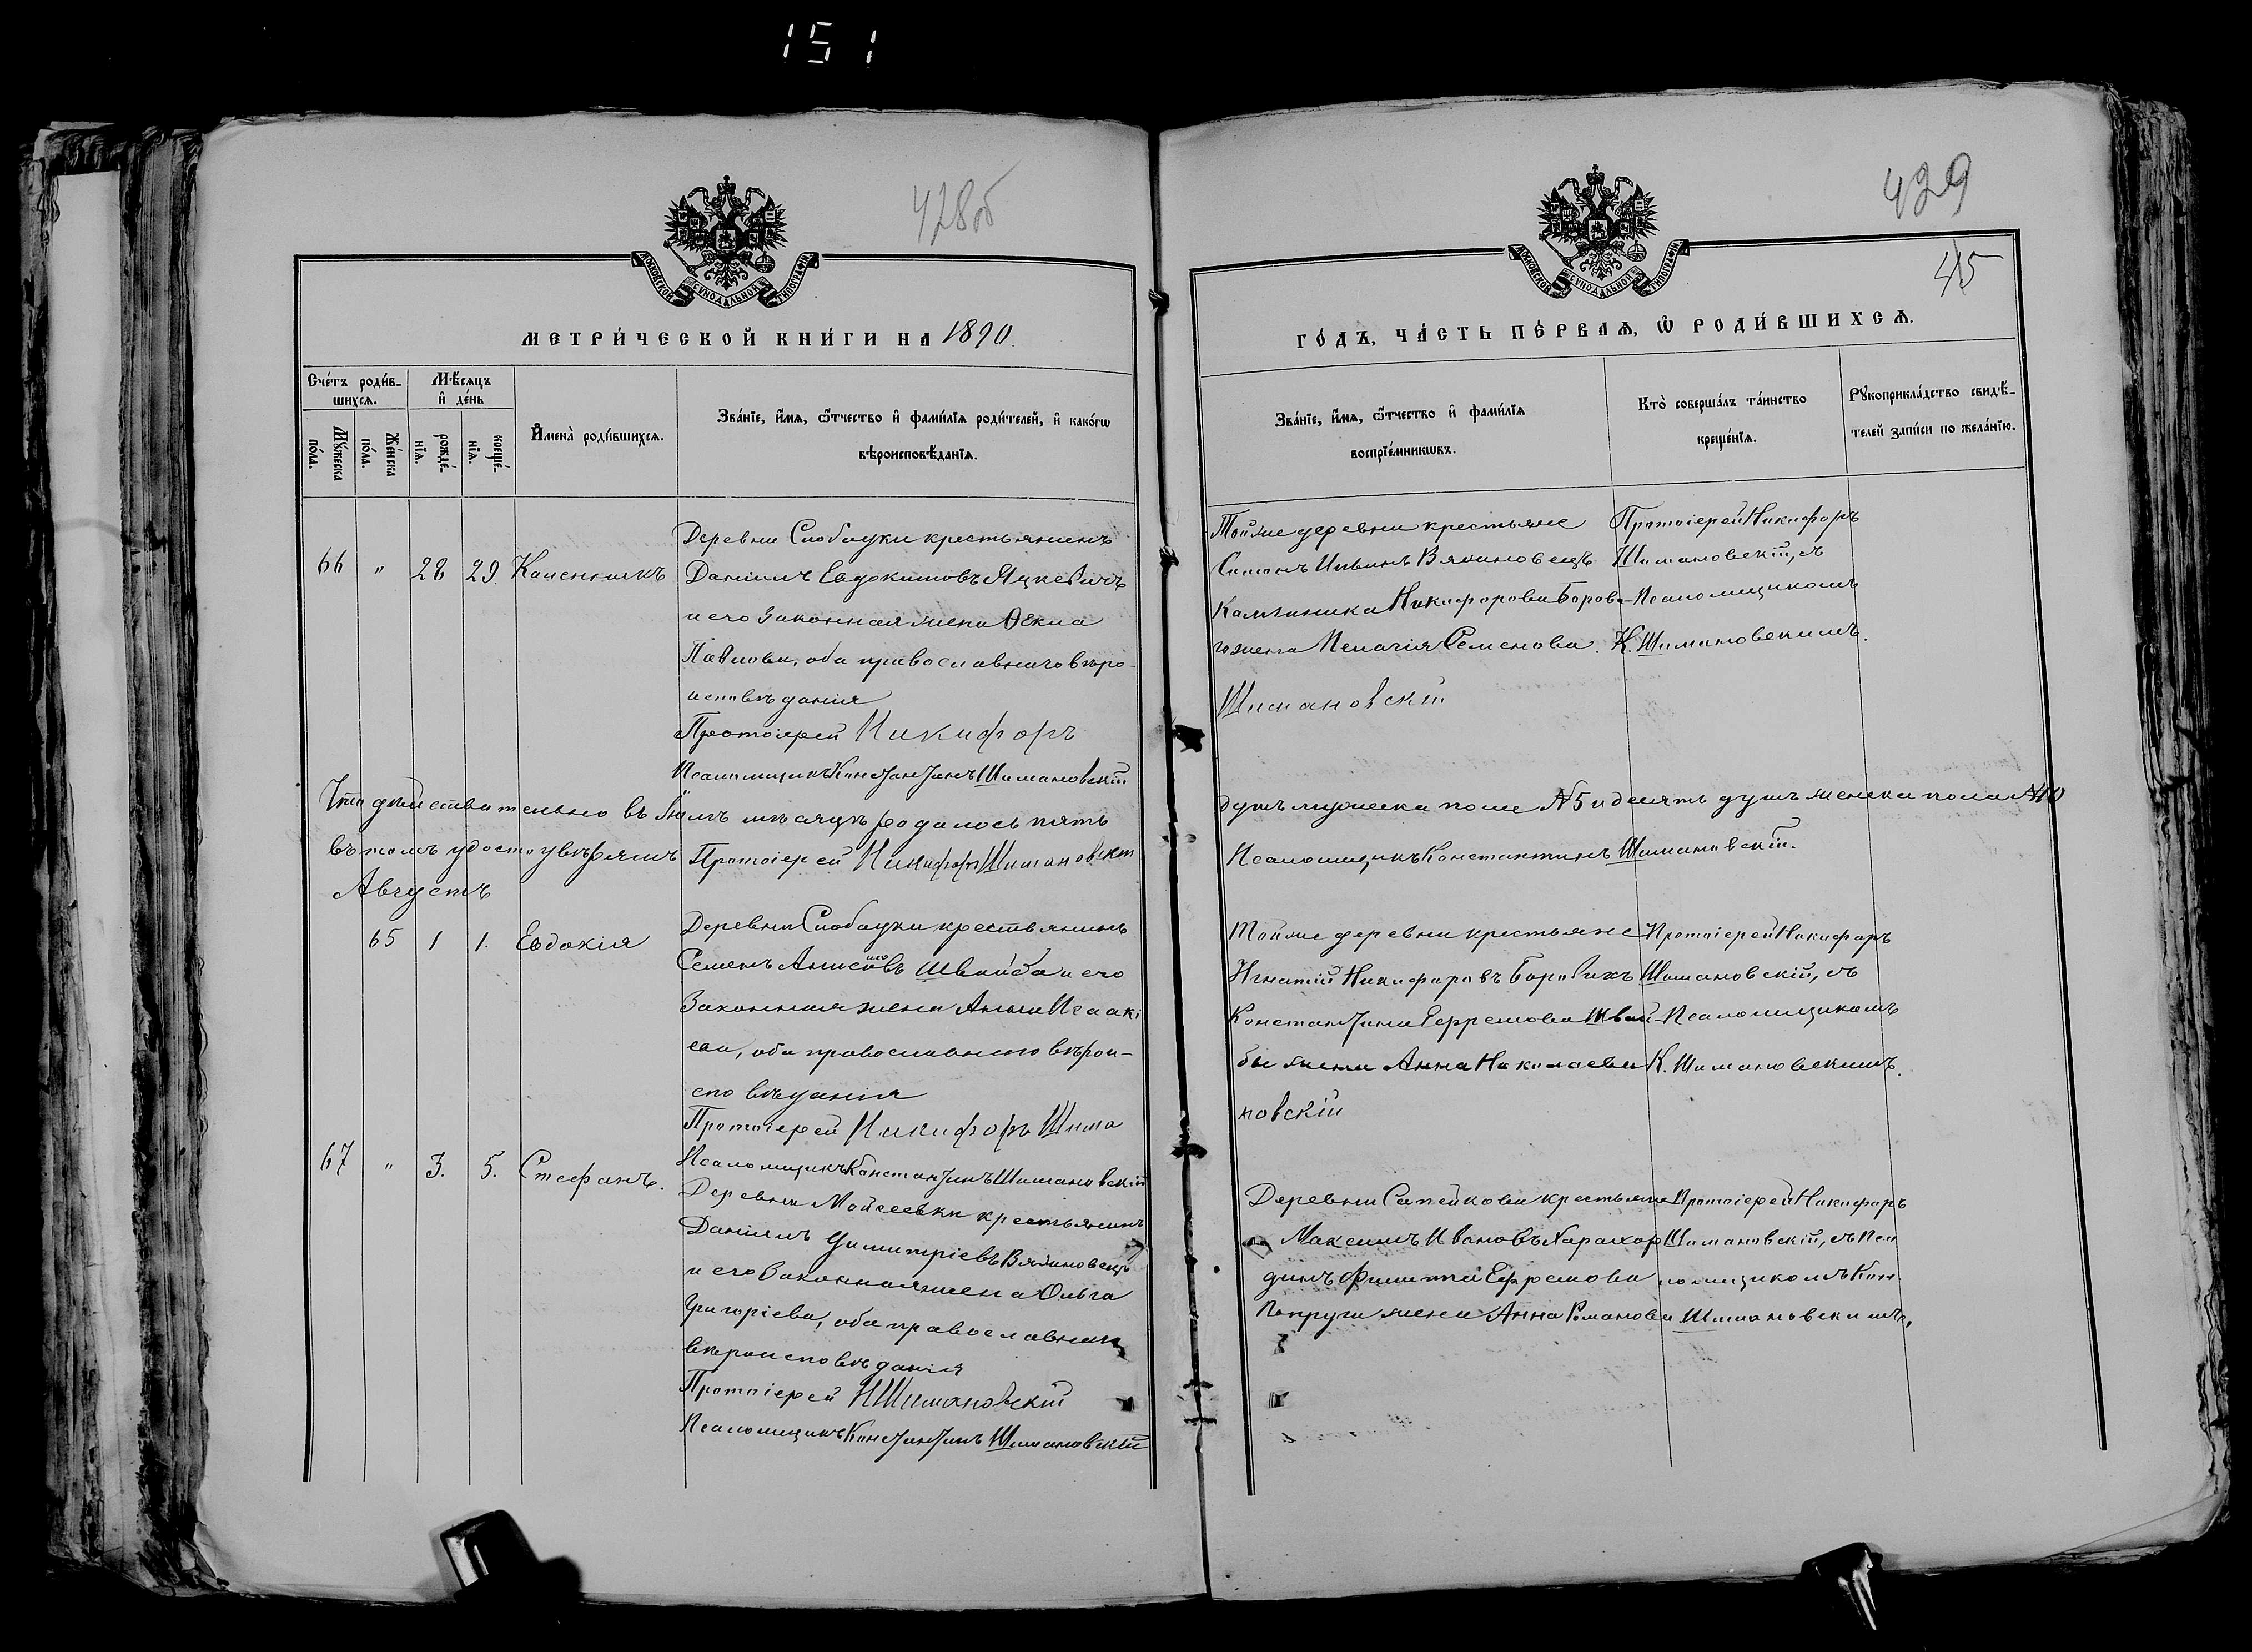 151
428об
429
45
МОСКОВСКОЙ СѴНОДАЛЬНОЙ ТИПОГРАФІИ
МЕТРИ́ЧЕСКОЙ КНИ́ГИ НА 1890.
Сче́тъ роди́в-
шихсѧ.
Мѣ́сѧцъ
и҆ де́нь
Мꙋ́жеска
по́ла.
Же́нска
по́ла.
рожде́-
нїѧ.
креще́-
нїѧ.
И҆мена̀ роди́вшихсѧ.
Зва́нїе, и҆́мѧ, ѻ҆́тчество и҆ фами́лїѧ роди́телей, и҆ како́гѡ
вѣроисповѣ́данїѧ.
66 " 28 29. Каленникъ
Деревни Слободки крестьянинъ
Даніилъ Евдокимовъ Яцкевичъ
и его законная жена Ѳекла
Павлова, оба православнаго вѣро-
исповѣданія
Протоіерей Никифоръ
Псаломщикъ Константинъ Шимановскій
Что дѣйствительно въ Іюлѣ мѣсяцѣ родилось пять
въ томъ удостовѣряемъ Протоіерей Никифоръ Шимановскій
Августъ
65 1 1. Евдокія
Деревни Слободки крестьянинъ
Семенъ Анисимовъ Швайба и его
законная жена Анна Исаакі
ева, оба православнаго вѣрои-
сповѣданія
Протоіерей Никифоръ Шима
67 " 3. 5. Стефанъ.
Псаломщикъ Константинъ Шимановскій
Деревни Мойсеевки крестьянинъ
Даніилъ Димитріевъ Вязиновецъ
и его законная жена Ольга
Григорьева, оба православнаго
вѣроисповѣданія
Протоіерей Н Шимановскій
Псаломщикъ Константинъ Шимановскій
МОСКОВСКОЙ СѴНОДАЛЬНОЙ ТИПОГРАФІИ
ГО́ДЪ, ЧА́СТЬ ПЕ́РВАѦ, Ѽ РОДИ́ВШИХСѦ.
Зва́нїе, и҆́мѧ, ѻ҆́тчество и҆ фами́лїѧ
воспрїе́мникѡвъ.
Кто̀ соверша́лъ та́инство
креще́нїѧ.
Рꙋкоприкла́дство свидѣ́-
телей за́писи по жела́нїю.
Тойже деревни крестьяне
Ильинъ Вязиновецъ
Каллиника Никифорова Борови-
жена Семенова.
Шимановскій
Протоіерей Никифоръ
Шимановскій, съ
Псаломщикомъ
К. Шимановскимъ.
душъ мужеска пола №5 и десять душъ женска пола №10
Псаломщикъ Константинъ Шимановскій.
Тойже деревни крестьяне
Игнатій Никифоровъ Боровикъ
Константина Ефремова Швай-
бы жена Анна Николаева
новскій
Протоіерей Никифоръ
Шимановскій, съ
Псаломщикомъ
К. Шимановскимъ.
Деревни крестьяне
Максимъ Ивановъ
Ефремова
жена Анна Романова
Протоіерей Никифоръ
Шимановскій, съ Пса
ломщикомъ Кон.
Шимановскимъ.